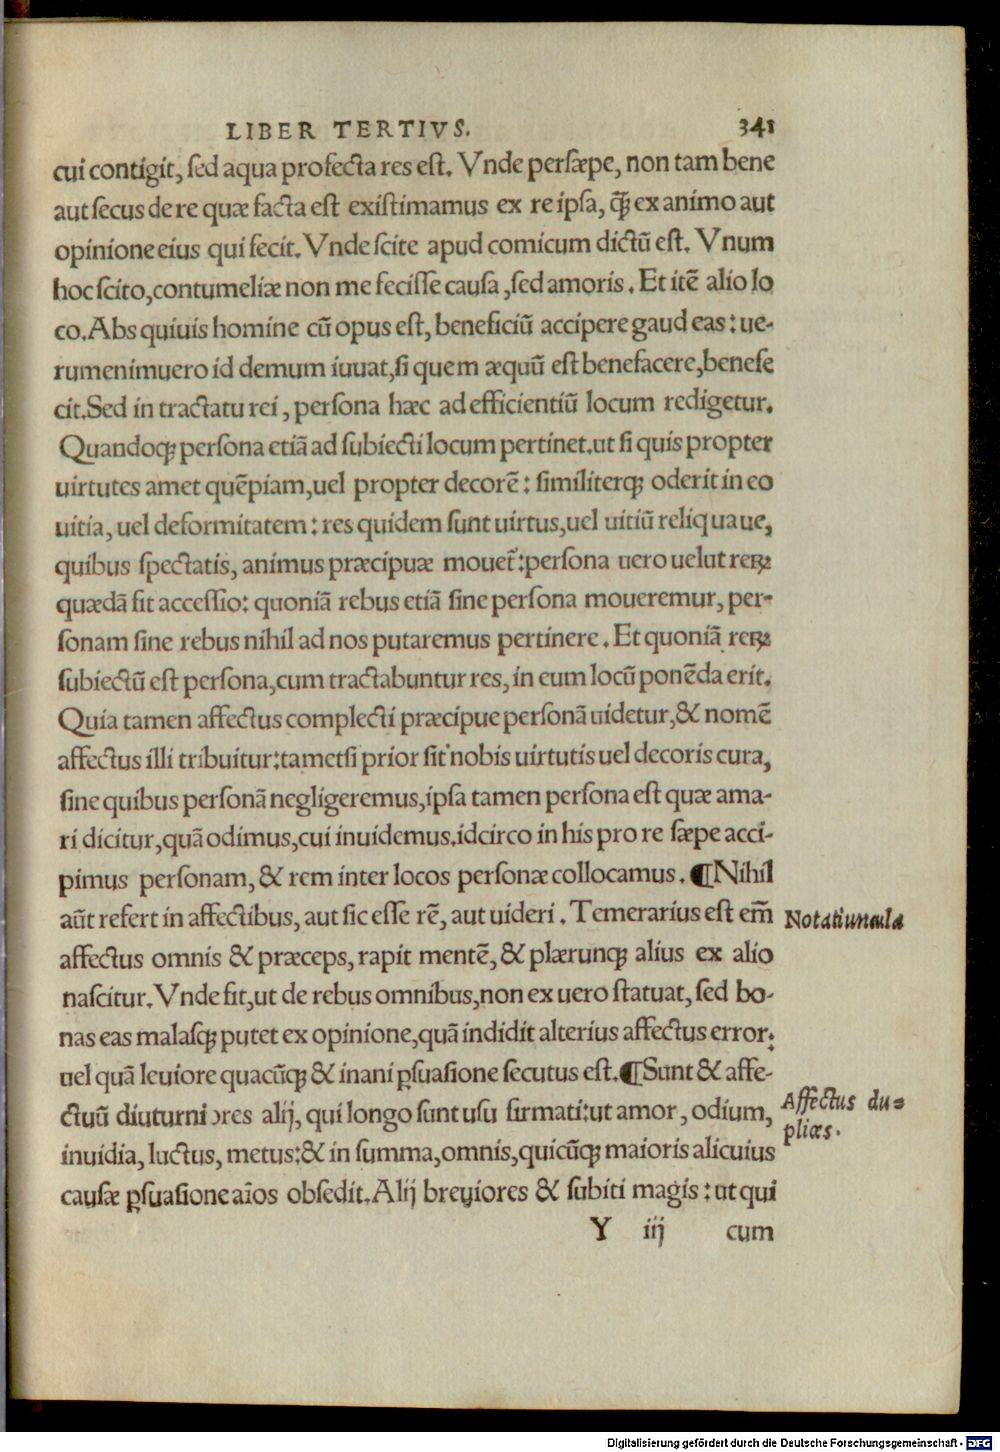 LIBER TERTIVS. 341
cui contigit, ſed aqua profecta res eſt. Vnde perſæpe, non tam bene
aut ſecus de re quæ facta eſt exiſtimamus ex re ipſa, q̃ꝫ ex animo aut
opinione eius qui fecit. Vnde ſcite apud comicum dictũ eſt. Vnum
hoc ſcito, contumeliæ non me feciſſe cauſa, ſed amoris. Et itẽ alio lo
co. Abs quiuis homine cũ opus eſt, beneficiũ accipere gaudeas: ue-
rumenimuero id demum iuuat, ſi quem æquũ eſt benefacere, benefe
cit. Sed in tractatu rei, perſona hæc ad efficientiũ locum redigetur.
Quandoqꝫ perſona etiã ad ſubiecti locum pertinet. ut ſi quis propter
uirtutes amet quẽpiam, uel propter decorẽ: ſimiliterqꝫ oderit in eo
uitia, uel deformitatem: res quidem ſunt uirtus, uel uitiũ reliquaue,
quibus ſpectatis, animus præcipuæ mouet̃: perſona uero uelut reꝝ
quædã fit acceſſio: quoniã rebus etiã ſine perſona moueremur, per-
ſonam ſine rebus nihil ad nos putaremus pertinere. Et quoniã reꝝ
ſubiectũ eſt perſona, cum tractabuntur res, in eum locũ ponẽda erit.
Quia tamen affectus complecti præcipue perſonã uidetur, & nomẽ
affectus illi tribuitur: tametſi prior ſit nobis uirtutis uel decoris cura,
ſine quibus perſonã negligeremus, ipſa tamen perſona eſt quæ ama-
ri dicitur, quã odimus, cui inuidemus. idcirco in his pro re ſæpe acci-
pimus perſonam, & rem inter locos perſonæ collocamus. ¶ Nihil
aũt refert in affectibus, aut ſic eſſe rẽ, aut uideri. Temerarius eſt em̃
Notatiuncula
affectus omnis & præceps, rapit mentẽ, & plærunqꝫ alius ex alio
naſcitur. Vnde fit, ut de rebus omnibus, non ex uero ſtatuat, ſed bo-
nas eas malaſqꝫ putet ex opinione, quã indidit alterius affectus error:
uel quã leuiore quacũqꝫ & inani ꝑſuaſione ſecutus eſt. ¶ Sunt & affe-
ctuũ diuturniores alij, qui longo ſunt uſu firmati: ut amor, odium,
Affectus du-
plices.
inuidia, luctus, metus: & in ſumma, omnis, quicũqꝫ maioris alicuius
cauſæ ꝑſuaſione aĩos obſedit. Alij breuiores & ſubiti magis: ut qui
Y iij cum
Digitalisierung gefördert durch die Deutsche Forschungsgemeinschaft - DFG